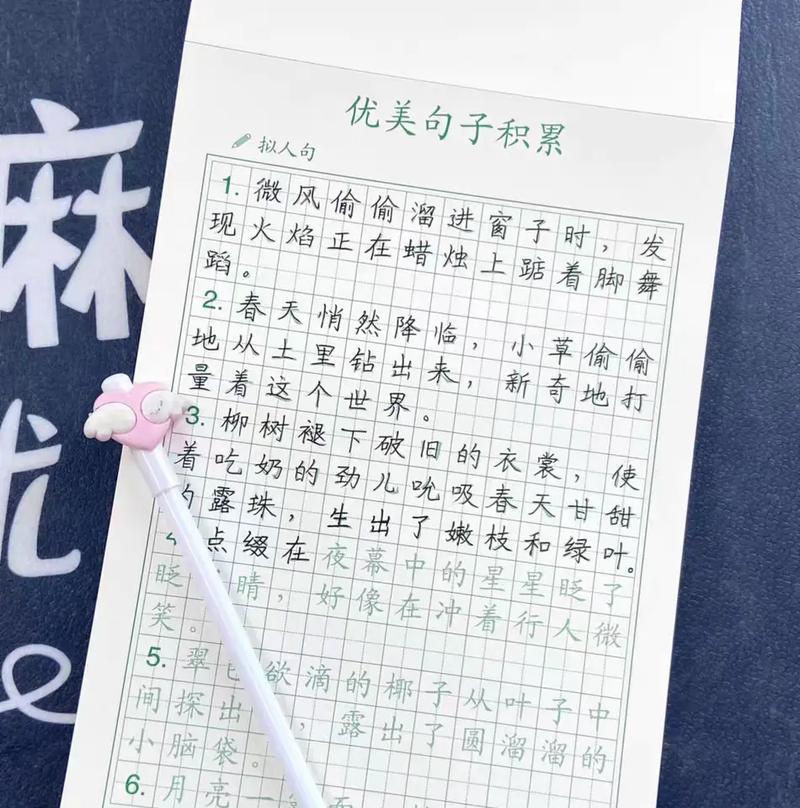 优美句子积累
拟人句
1. 微风偷偷溜进窗子时，发
现火焰正在蜡烛上踮着脚舞
蹈。
2. 春天悄然降临，小草偷偷
地从土里钻出来，新奇地打
量着这个世界。
3. 柳树褪下破旧的衣裳，使
着吃奶的劲儿吮吸春天甘甜
露珠，生出了嫩枝和绿叶。
点缀在夜幕中的星星眨了
眨 睛，好像在冲着行人微
笑。
5. 翠 欲滴的椰子从叶子中
间探出 ，露出了圆溜溜的
小脑袋。
6. 月亮一
麻